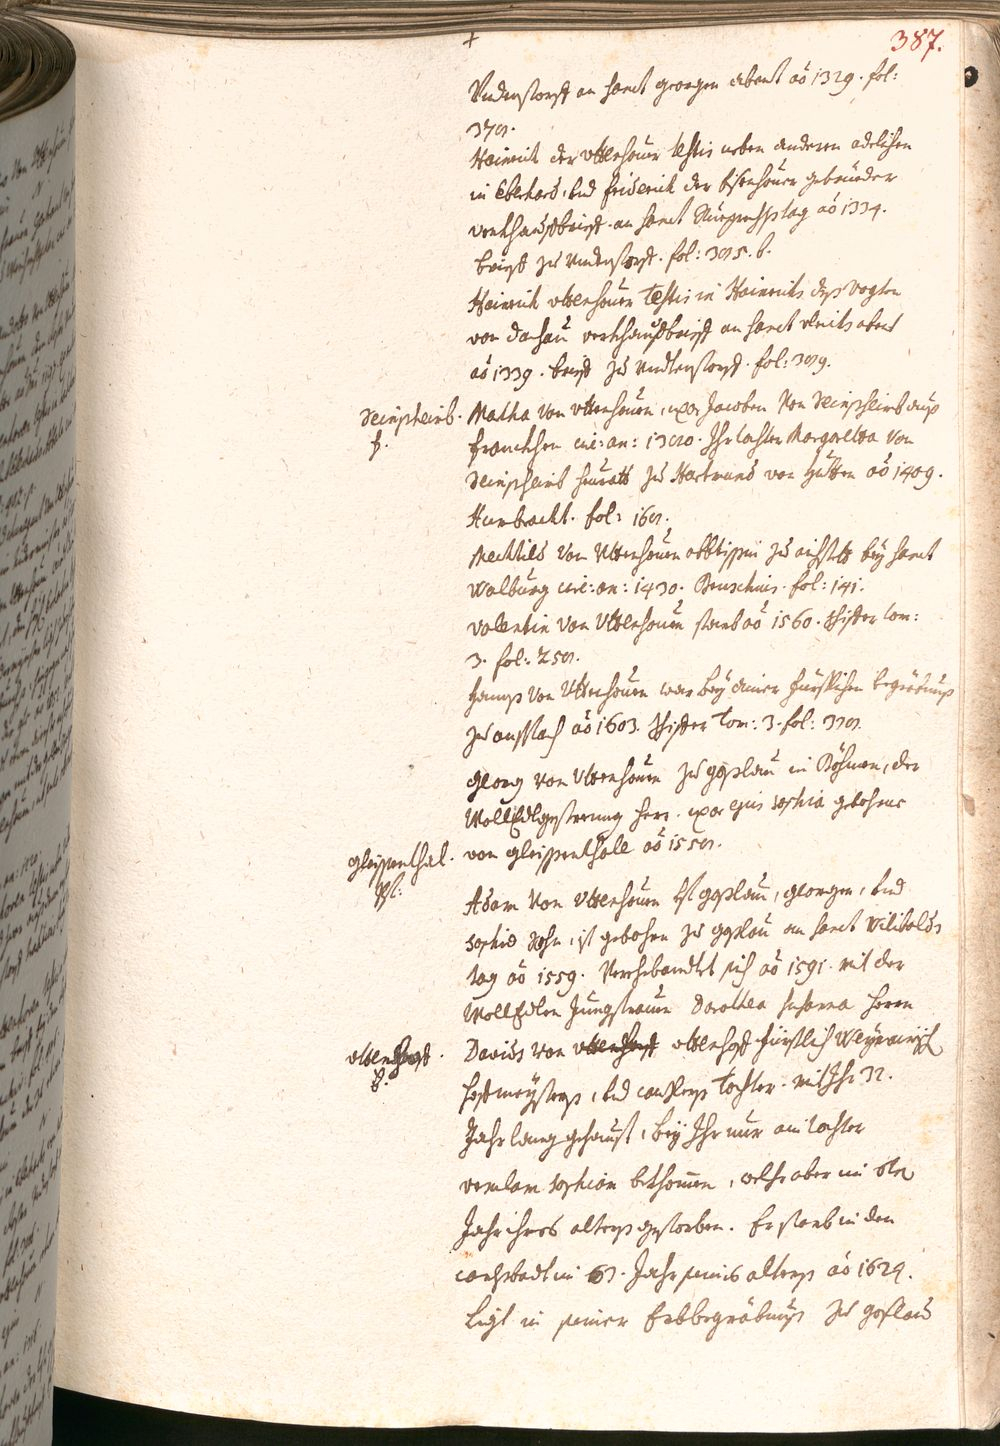 387.
+
Undenstorff an sanct georgen abent aõ 1329. fol:
370.
Hainrich der Uttenhouer testis neben anderen adelichen
in Eberhard, und friderich der Eisenhouer gebrüeder
verkhauffbrieff an sanct Rueprechts tag aõ 1334.
brieff zu undenstorff. fol: 305. b.
Hainrich uttenhouer testis in Hainrichs dess vogten
von dachau verkhauffbrieff an sanct ulrichs abent
aõ 1339. brieff zu undtenstorff. fol: 309.
Seinsheimb.
f.
Matha von uttenhouen, uxor Jacoben von Seinsheimb auss
franckhen circ: an: 1380. Ihr tochter Margaretta von
Seinsheimb heuratt zu Hartmund von Hutten aõ 1409.
Humbracht. fol: 160.
Mechtild von Uttenhouen abbtissin zu aichstett bey sanct
Walburg circ: an: 1430. Bruschius. fol: 141.
valentin von Uttenhouen starb aõ 1560. Schiffer tom:
3. fol: 250.
Hanns von Uttenhouen war bey ainer fürstlichen begräbnuss
zu anspach aõ 1603. Schiffer tom: 3. fol: 370.
Georg von Uttenhouen zu gosslau in Böhmen, der
WollEdlgesterung herr. uxor ejus sophia gebohrne
gleissenthal.
von gleissenthall aõ 1550.
Adam von Uttenhouen uff gosslau, georgen, und
sophiæ Sohn, ist gebohren zu gosslau an sanct Wilibalds
tag aõ 1559. Verehebandlet sich aõ 1591. mit der
WollEdlen Jungfrauen Dorothea susanna herrn
uttenhoff.
f.
Davids von uttenhoff fürstlich Weymarisch
hoffmaysters, und canzlers tochter. mit Ihr 32.
Jahr lang gehaust, bey Ihr nur ain tochter
sophiam bekhommen, welche aber im
Jahr ihres alters gestorben. Er starb in den
carlsbadt im 63. Jahr seines alters aõ 1624.
Ligt in seiner Erbbegräbnuss zu goslau